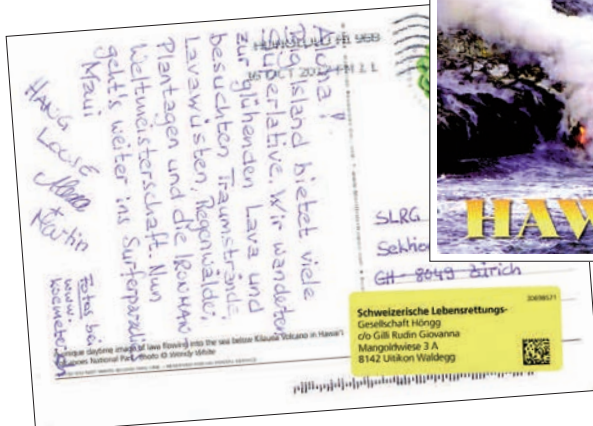 Aloha!
Big Island bietet viele
Superlative. Wir wanderten
zur glühenden Lava und
besuchten Traumstrände,
Lavawüsten, Regenwälder,
Plantagen und die IRONMAN
Weltmeisterschaft. Nun
geht's weiter ins Surferparadies
Maui
Louise
Martin
Fotos bei
www.
HONOLULU HI 968
15 OCT
SLRG
Sektion
CH-8049 Zürich
30698571
Schweizerische Lebensrettungs-
Gesellschaft Höngg
c/o Gilli Rudin Giovanna
Mangoldwiese 3 A
8142 Uitikon Waldegg
A unique daytime image of lava flowing into the sea below Kilauea Volcano in Hawai'i
Volcanoes National Park. Photo © Wendy White
HAW